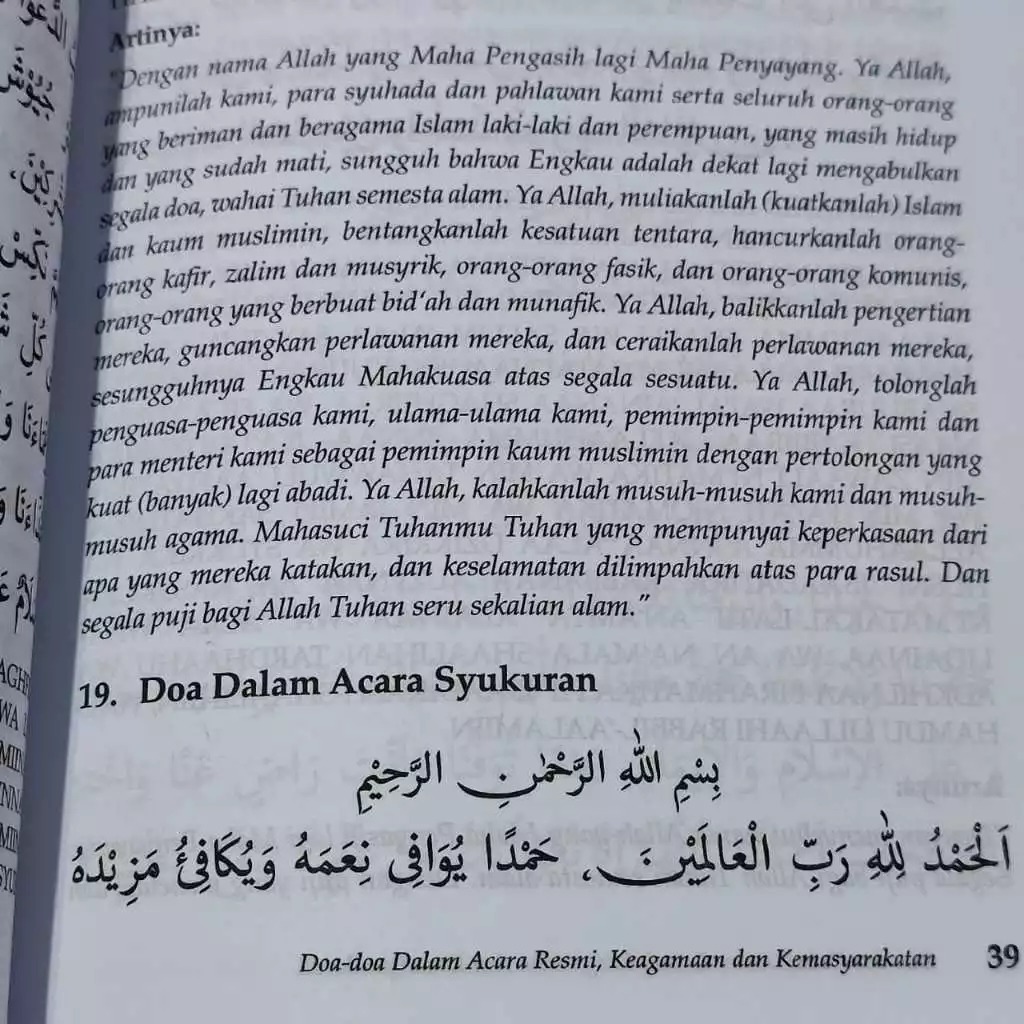 Artinya:
"Dengan nama Allah yang Maha Pengasih lagi Maha Penyayang. Ya Allah,
ampunilah kami, para syuhada dan pahlawan kami serta seluruh orang-orang
yang beriman dan beragama Islam laki-laki dan perempuan, yang masih hidup
dan yang sudah mati, sungguh bahwa Engkau adalah dekat lagi mengabulkan
segala doa, wahai Tuhan semesta alam. Ya Allah, muliakanlah (kuatkanlah) Islam
dan kaum muslimin, bentangkanlah kesatuan tentara, hancurkanlah orang-
orang kafir, zalim dan musyrik, orang-orang fasik, dan orang-orang komunis,
orang-orang yang berbuat bid'ah dan munafik. Ya Allah, balikkanlah pengertian
mereka, guncangkan perlawanan mereka, dan ceraikanlah perlawanan mereka,
sesungguhnya Engkau Mahakuasa atas segala sesuatu. Ya Allah, tolonglah
penguasa-penguasa kami, ulama-ulama kami, pemimpin-pemimpin kami dan
para menteri kami sebagai pemimpin kaum muslimin dengan pertolongan yang
kuat (banyak) lagi abadi. Ya Allah, kalahkanlah musuh-musuh kami dan musuh-
musuh agama. Mahasuci Tuhanmu Tuhan yang mempunyai keperkasaan dari
apa yang mereka katakan, dan keselamatan dilimpahkan atas para rasul. Dan
segala puji bagi Allah Tuhan seru sekalian alam."
19. Doa Dalam Acara Syukuran
بِسْمِ اللهِ الرَّحْمٰنِ الرَّحِيْمِ
اَلْحَمْدُ لِلّٰهِ رَبِّ الْعَالَمِيْنَ، حَمْدًا يُوَافِى نِعَمَهُ وَيُكَافِئُ مَزِيْدَهُ
Doa-doa Dalam Acara Resmi, Keagamaan dan Kemasyarakatan 39